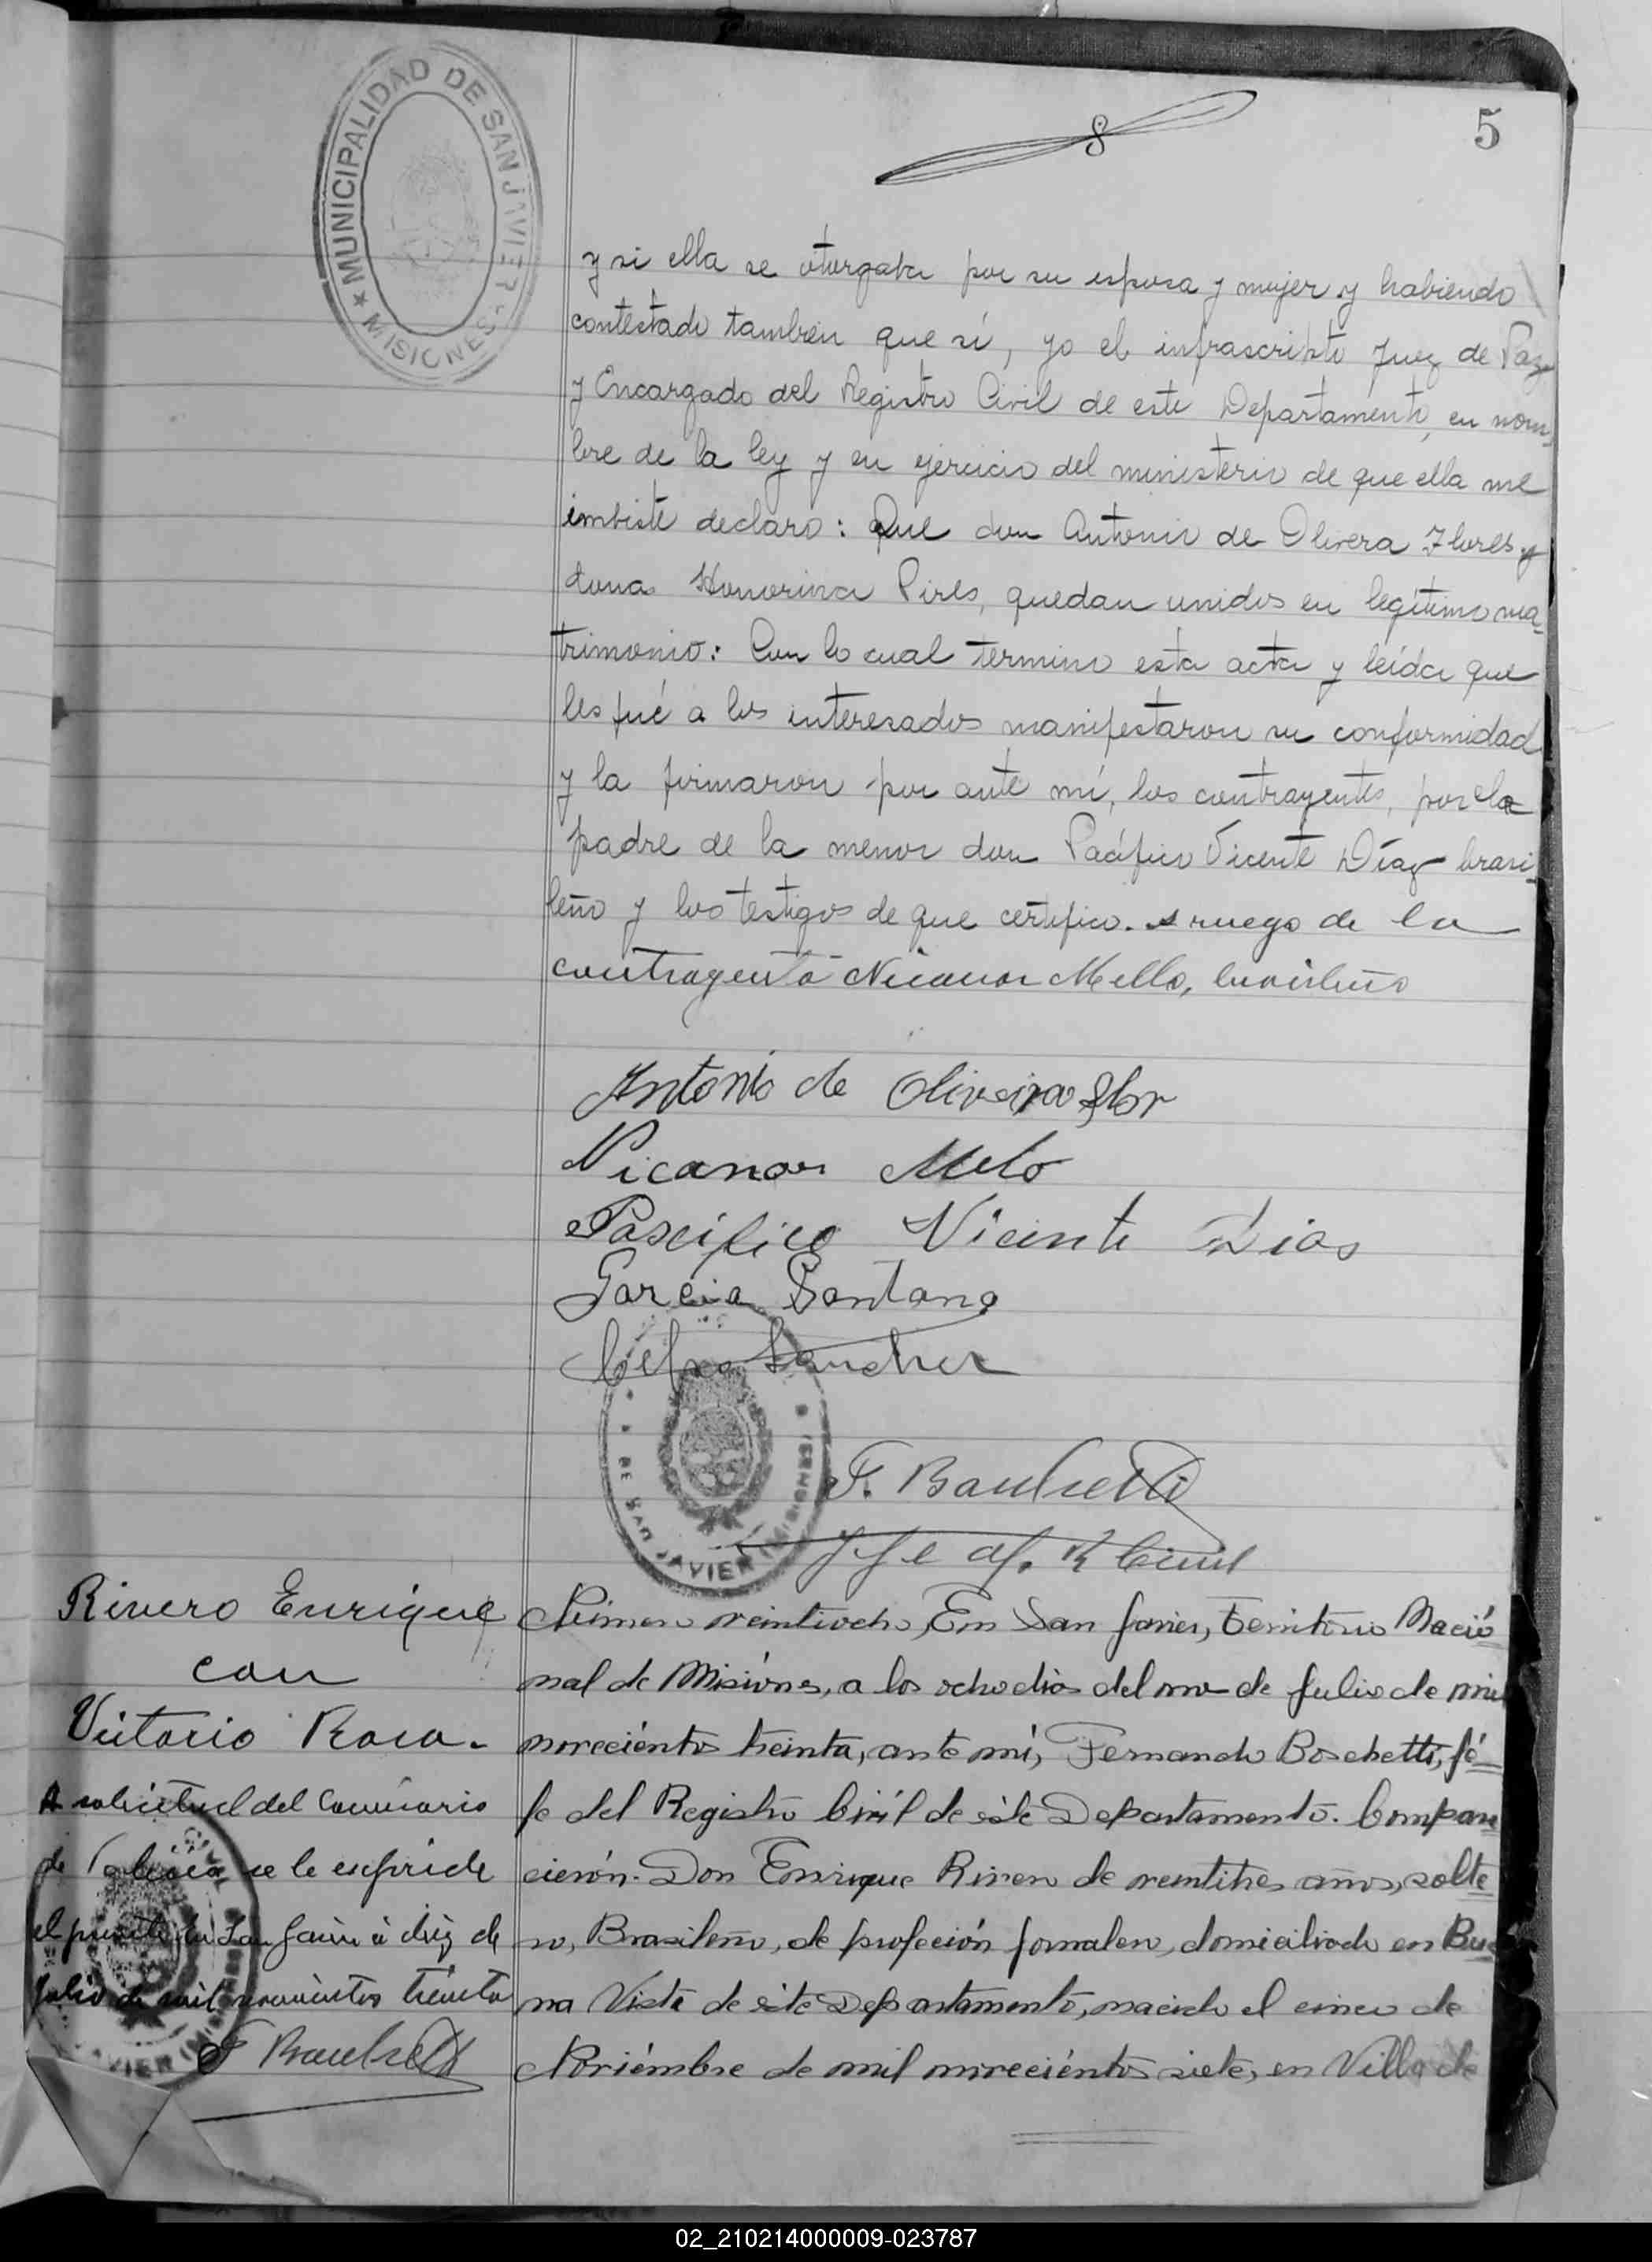 MUNICIPALIDAD DE SAN JAVIER
MISIONES
8
5
y si ella se otorgaba por su esposa y mujer y habiendo
contestado tambien que sí, yo el infrascripto Juez de Paz
y Encargado del Registro Civil de este Departamento, en nom-
bre de la ley y en ejercicio del ministerio de que ella me
imbiste declaro: Que don Antonio de Olivera Flores y
dona Honorina Pires, quedan unidos en legítimo ma-
trimonio: Con lo cual termino esta acta y leída que
les fué a los interesados manifestaron su conformidad
y la firmaron por ante mí, los contrayentes, por el
padre de la menor don Pacífico Vicente Díaz brasi-
leño y los testigos de que certifico. A ruego de la
contrayente Nicanor Mello, brasileño
Antonio de Oliveira Flor
Nicanor Melo
Pascifico Vicente Dias
Garcia Santana
Sanchez
DE SAN JAVIER (MISIONES)
F. Boschetti
Jfe of. R Civil
Rivero Enrique
con
Victorio Rosa.
A solicitud del Comisario
de Policía se le expide
el presente en San Javier a diez de
Julio de mil novecientos treinta
F Boschetti
Número veintiocho, En San Javier, Territorio Nació-
nal de Misiónes, a los ocho dias del mes de Julio de mil
noveciéntos treinta, ante mí, Fernando Boschetti, Jé-
fe del Registro Civíl de éste Departamento. Compare
cierón. Don Enrique Rivero de veintitres años, solte-
ro, Brasileño, de profeción jornalero, domiciliado en Bue-
na Vista de éste Departamento, nacido el cinco de
Noviémbre de mil noveciéntos siete, en Villa de
02_210214000009-023787